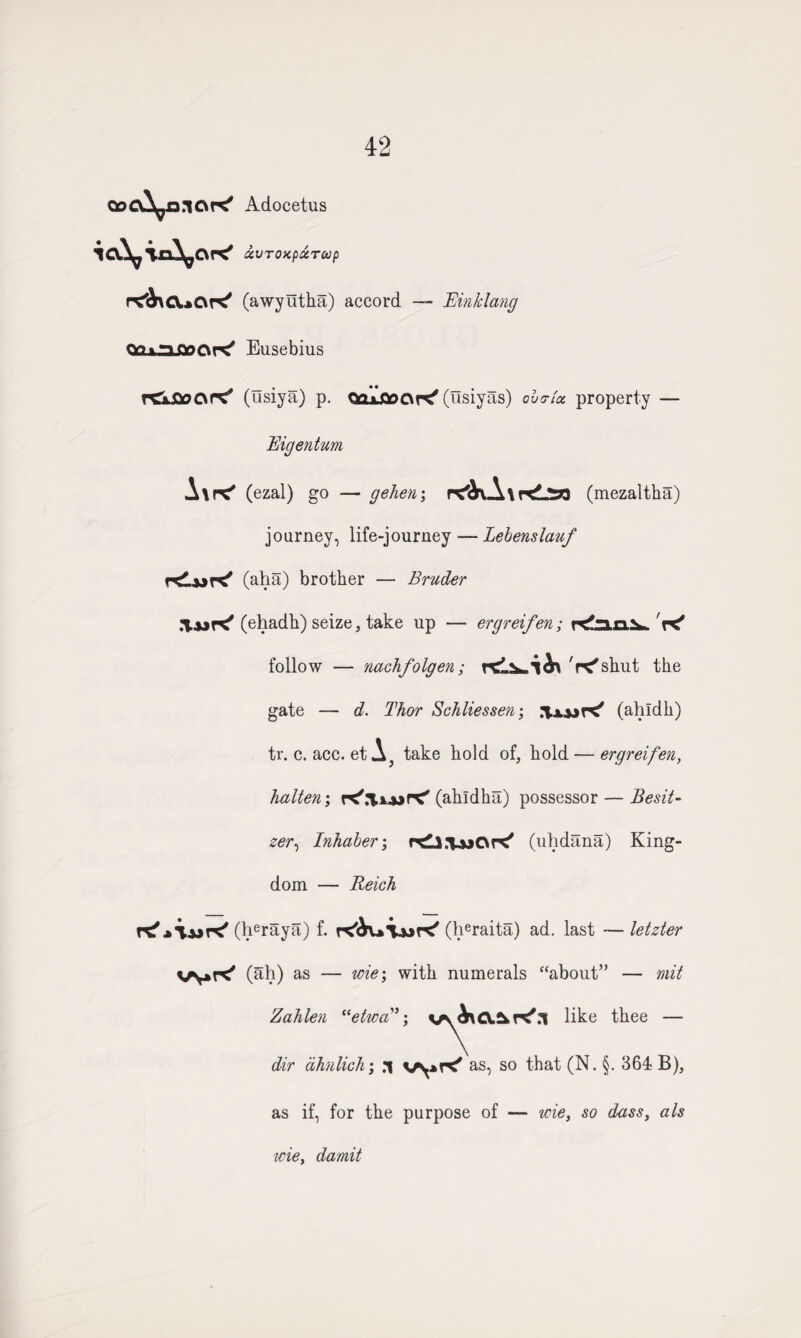 42
ܐܘܕܩܛܘܣ Adocetus
ܐܘܛܩܪܛܘܪ ἀυτοκράτωρ
ܐܘܝܘܬܐ (awyūthā) accord — Einklang
ܐܘܣܒܝܣ Eusebius
ܐܘܣܝܐ (ūsiyā) p. ܐܘܣܝ̈ܣ (ūsiyās) οὐσία property —
Eigentum
ܐܙܠ (ezal) go — gehen; ܡܐܙܠܬܐ (mezalthā)
journey, life-journey — Lebenslauf
ܐܚܐ (aḥā) brother — Bruder
ܐܚܕ (eḥadh) seize, take up — ergreifen; ܐ' ܥܩܒܐ
follow — nachfolgen; ܐ' ܬܪܥܐ shut the
gate — d. Thor Schliessen; ܐܚܝܕ (aḥīdh)
tr. c. acc. et ܠ, take hold of, hold — ergreifen,
halten; ܐܚܝܕܐ (aḥīdhā) possessor — Besit-
zer, Inhaber; ܐܘܚܕܢܐ (uḥdānā) King-
dom — Reich
ܐܚܪܝܐ (ḥᵉrāyā) f. ܐܚܪܝܬܐ (ḥᵉraitā) ad. last — letzter
ܐܝܟ (āḥ) as — wie; with numerals “about” — mit
Zahlen “etwa”; ܕܐܟܘܬܟ like thee —
dir ähnlich; ܐܝܟ ܕ as, so that (N. §. 364 B),
as if, for the purpose of — wie, so dass, als
wie, damit